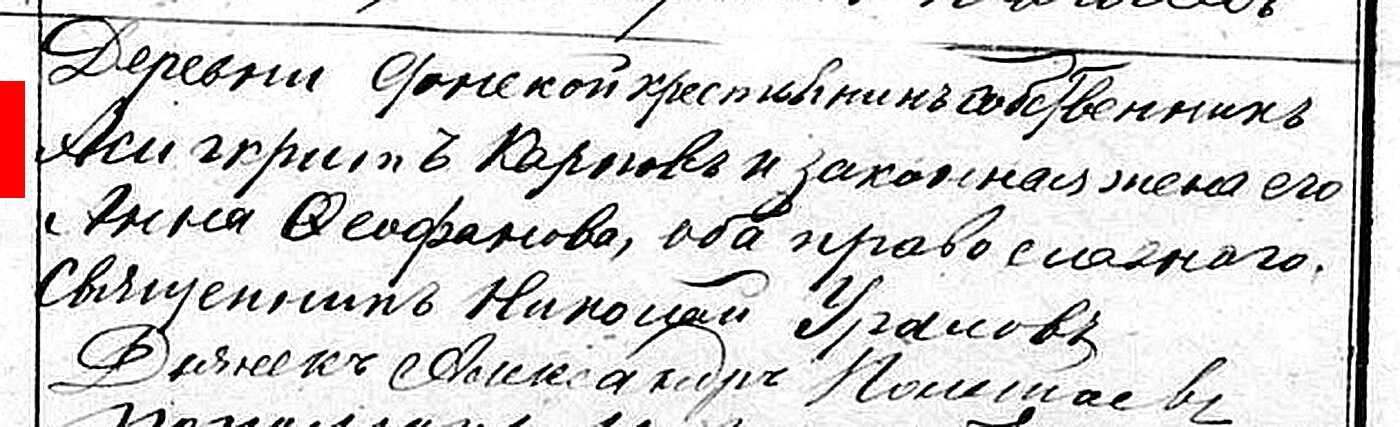 Деревни Фонской крестьянинъ собственникъ
Асигкритъ Карповъ и законная жена его
Анна Ѳеофанова, оба православнаго.
Священникъ Николай Ураловъ
Дьячекъ Александръ Полетаевъ